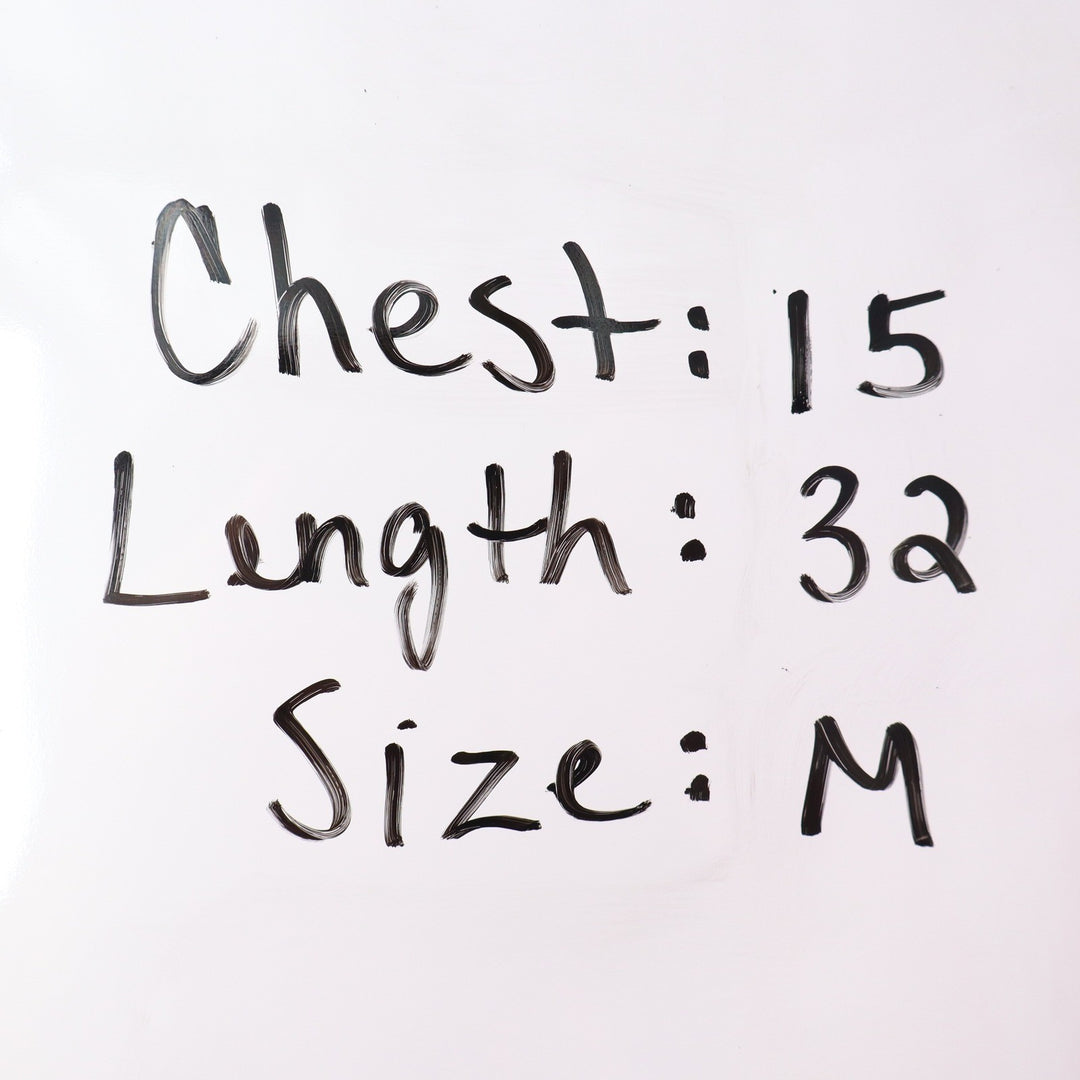 Chest: 15
Length: 32
Size: M